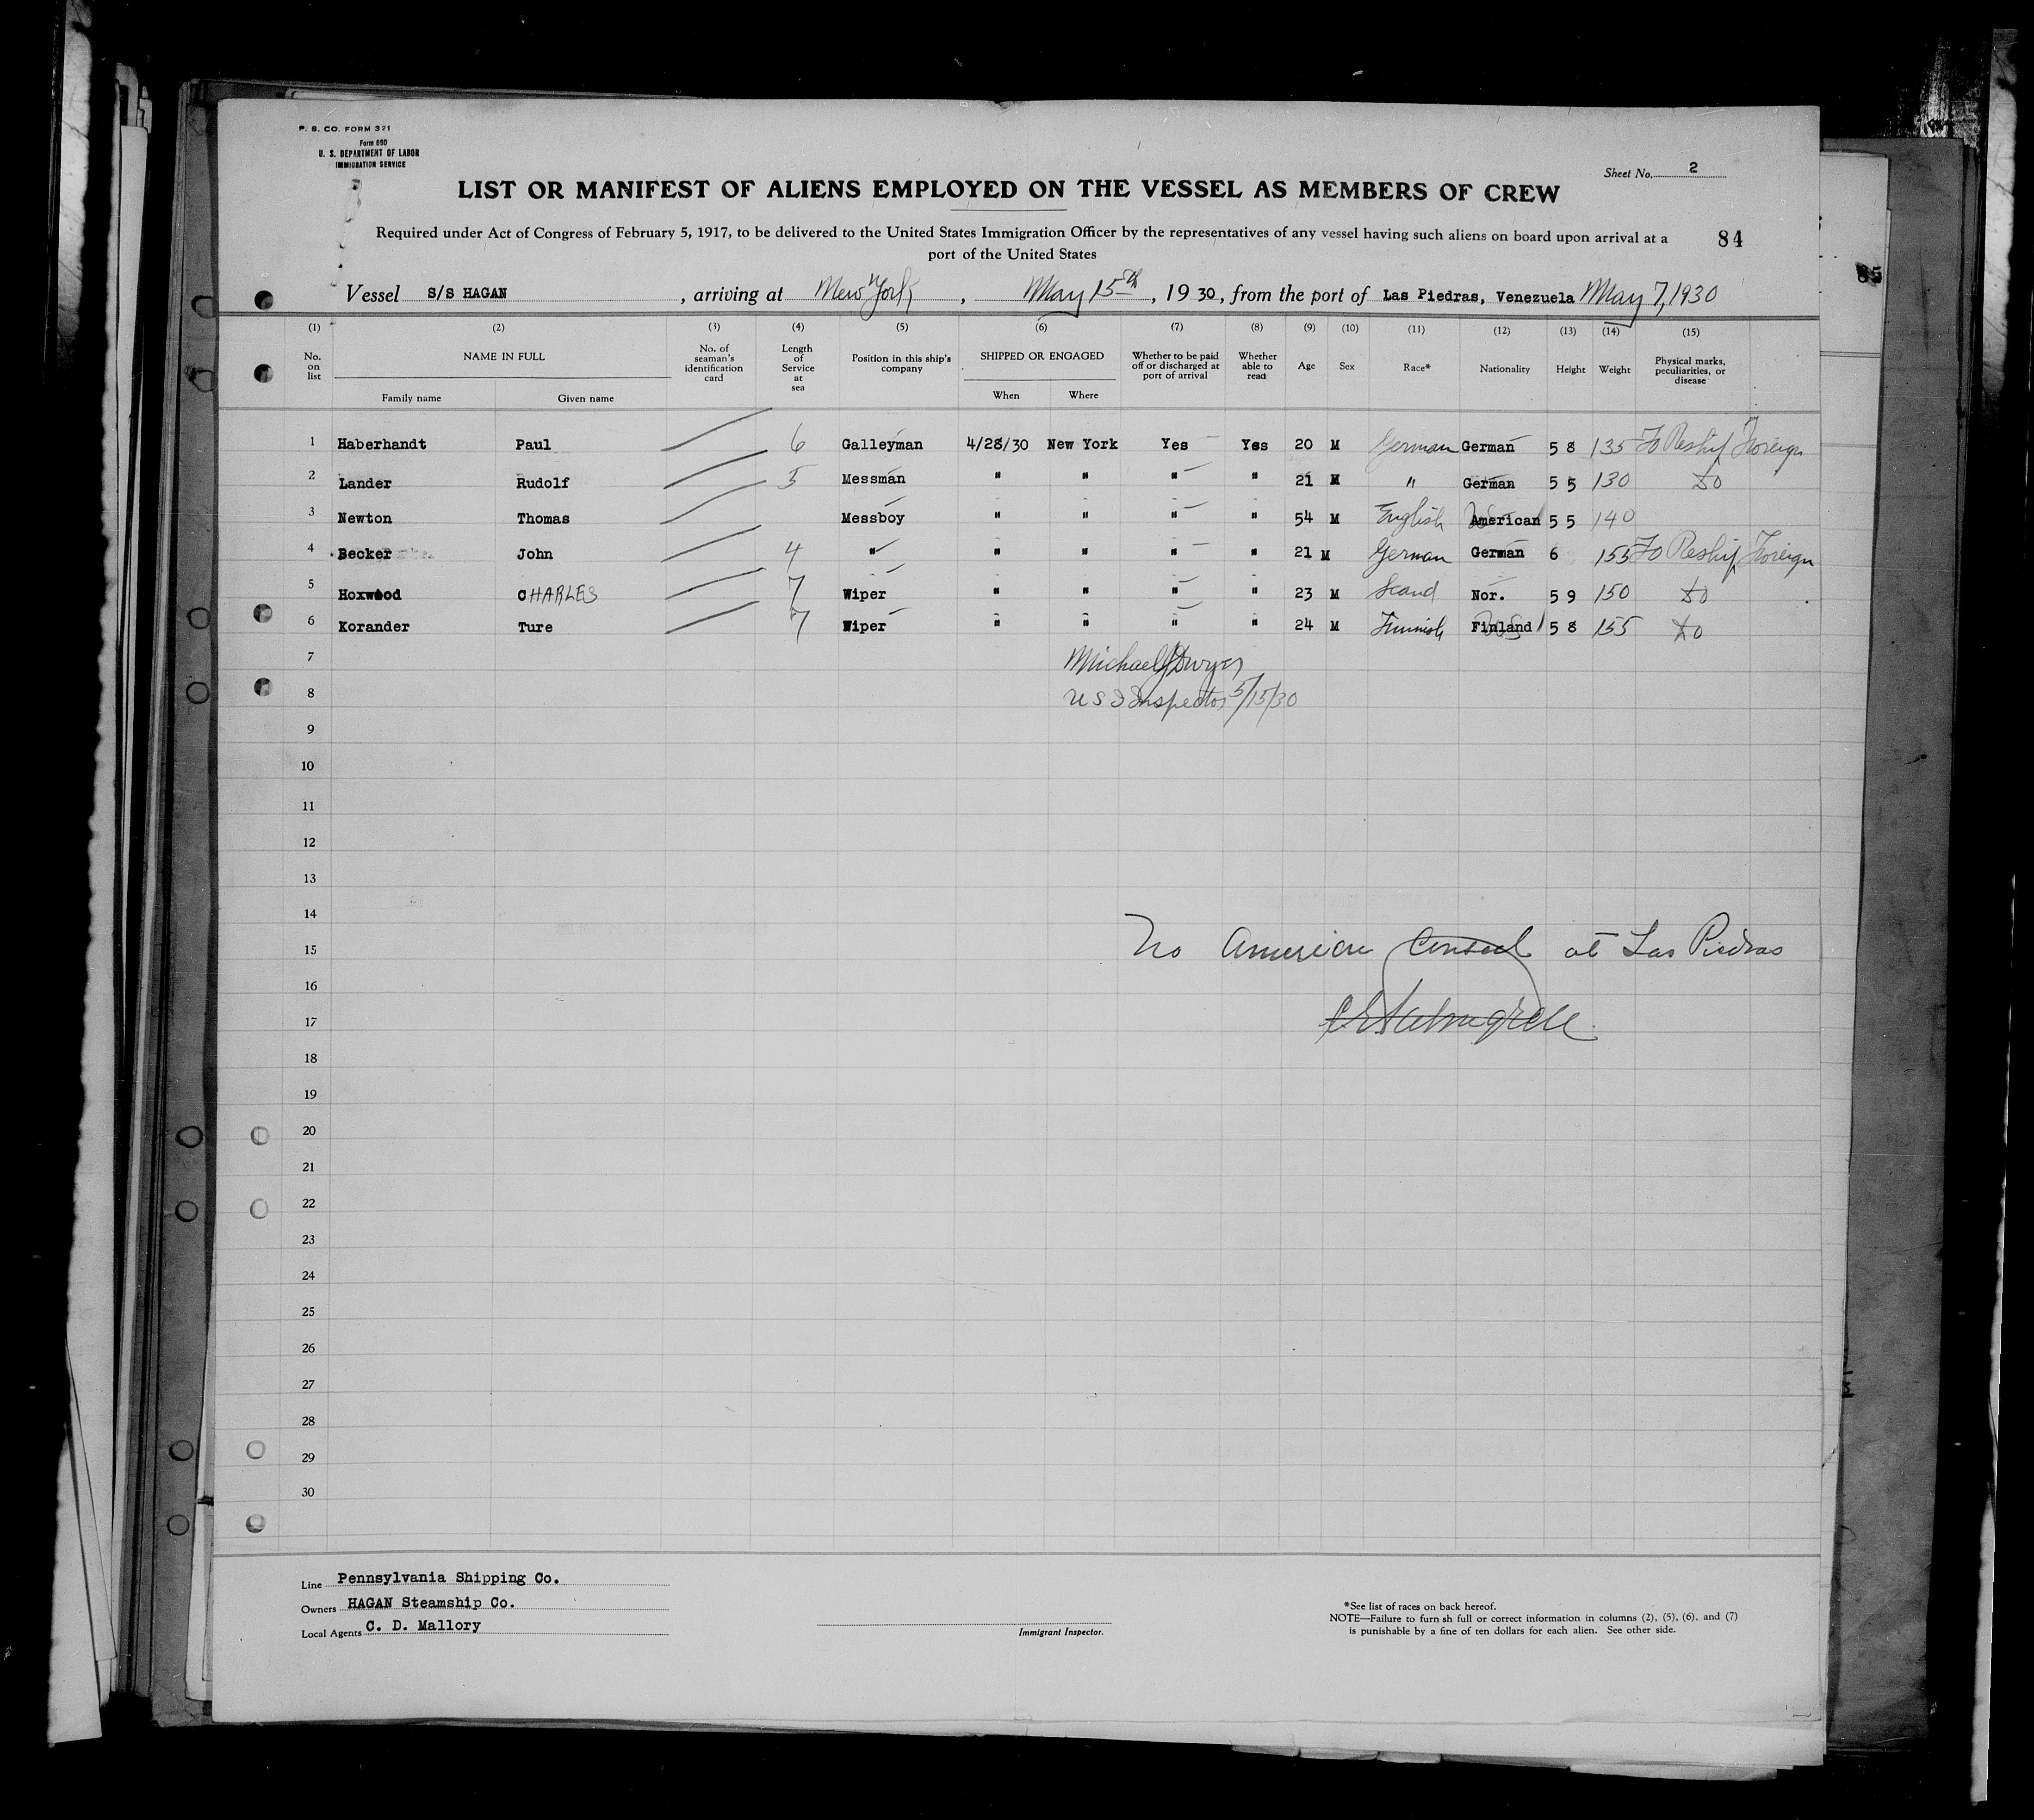 P. S. CO. FORM 321
Form 680
U. S. DEPARTMENT OF LABOR
IMMIGRATION SERVICE
Sheet No. 2
LIST OR MANIFEST OF ALIENS EMPLOYED ON THE VESSEL AS MEMBERS OF CREW
84
Required under Act of Congress of February 5, 1917, to be delivered to the United States Immigration Officer by the representatives of any vessel having such aliens on board upon arrival at a
port of the United States
85
Vessel S/S HAGAN, arriving at New York, May 15th, 1930, from the port of Las Piedras, Venezuela May 7, 1930
(1) (2) (3) (4) (5) (6) (7) (8) (9) (10) (11) (12) (13) (14) (15)
No. on list NAME IN FULL Family name Given name No. of seaman's identification card Length of Service at sea Position in this ship's company SHIPPED OR ENGAGED When Where Whether to be paid off or discharged at port of arrival Whether able to read Age Sex Race* Nationality Height Weight Physical marks, peculiarities, or disease
1 Haberhandt Paul 6 Galleyman 4/28/30 New York Yes Yes 20 M German German 5 8 135 To Reship Foreign
2 Lander Rudolf 5 Messman " " " " 21 M " German 5 5 130 do
3 Newton Thomas Messboy " " " " 54 M English American 5 5 140
4 Becker John 4 " " " " " 21 M German German 6 155 To Reship Foreign
5 Hoxwood CHARLES 7 Wiper " " " " 23 M Scand Nor. 5 9 150 do
6 Korander Ture 7 Wiper " " " " 24 M Finnish Finland 5 8 155 do
7 Michael J Dwyer
8 U S I Inspector 5/15/30
9
10
11
12
13
14
15 No American Consul at Las Piedras
16
17
18
19
20
21
22
23
24
25
26
27
28
29
30
Line Pennsylvania Shipping Co.
Owners HAGAN Steamship Co.
Local Agents C. D. Mallory
Immigrant Inspector.
*See list of races on back hereof.
NOTE—Failure to furn sh full or correct information in columns (2), (5), (6), and (7)
is punishable by a fine of ten dollars for each alien. See other side.